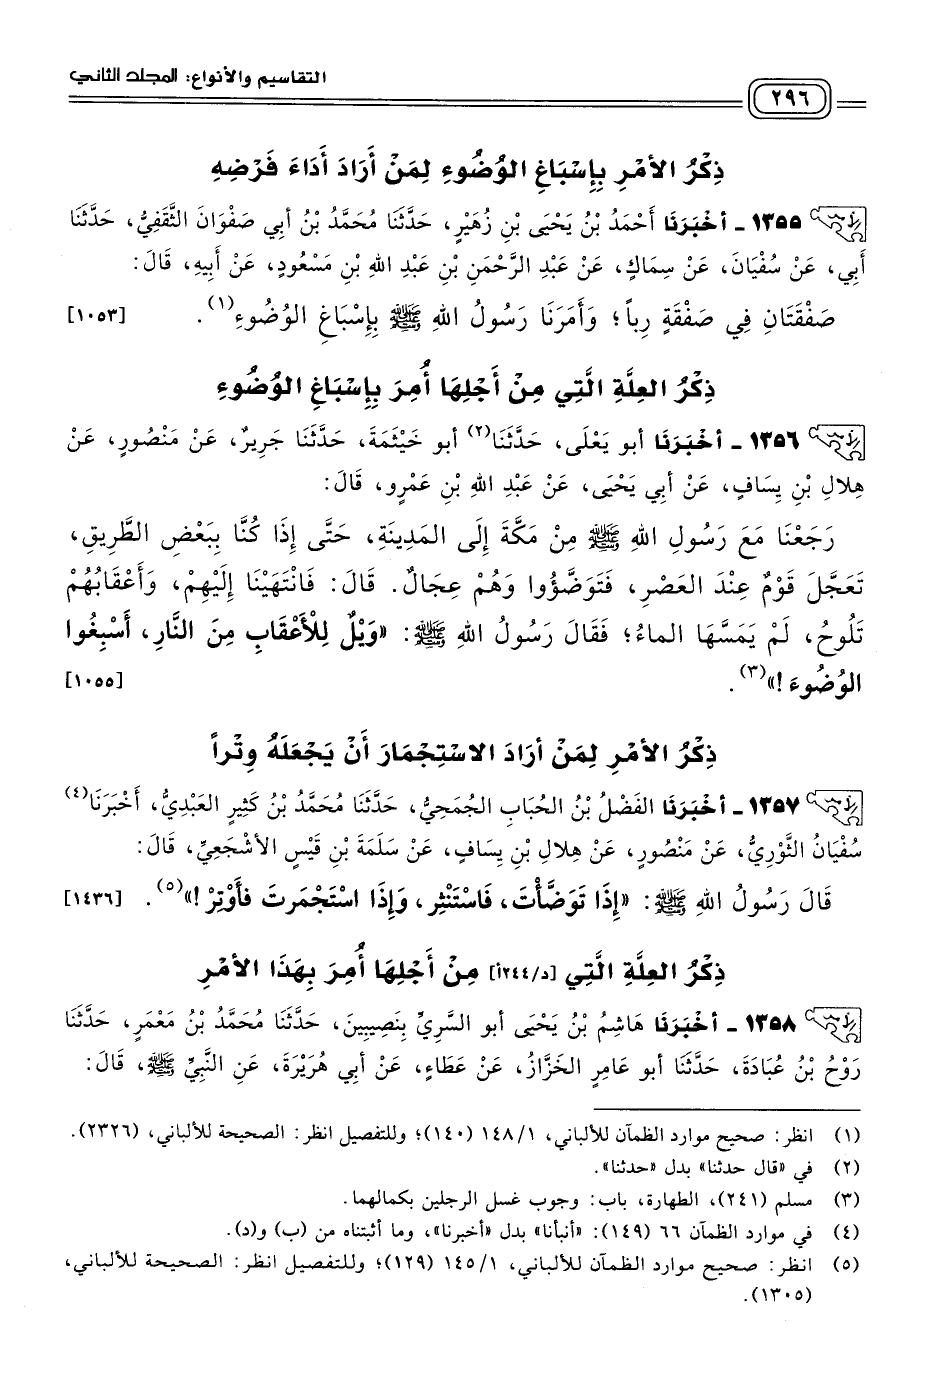 التقاسيم والأنواع: المجلد الثاني
٢٩٦
ذِكْرُ الأمْرِ بِإسْبَاغِ الوُضُوءِ لِمَنْ أَرَادَ أَدَاءَ فَرْضِهِ
١٣٥٥ - أخْبَرَنَا أَحْمَدُ بْنُ يَحْيَى بْنِ زُهَيْرٍ، حَدَّثَنَا مُحَمَّدُ بْنُ أبي صَفْوَانَ الثَّقَفِيُّ، حَدَّثَنَا
أبي، عَنْ سُفْيَانَ، عَنْ سِمَاكٍ، عَنْ عَبْدِ الرَّحْمَنِ بْنِ عَبْدِ اللهِ بْنِ مَسْعُودٍ، عَنْ أبِيهِ، قَالَ:
صَفْقَتَانِ فِي صَفْقَةٍ رِباً؛ وَأَمَرَنَا رَسُولُ اللهِ ﷺ بِإسْبَاغِ الوُضُوءِ(١). [١٠٥٣]
ذِكْرُ العِلَّةِ الَّتِي مِنْ أَجْلِهَا أُمِرَ بِإِسْبَاغِ الوُضُوءِ
١٣٥٦ - أخْبَرَنَا أبو يَعْلَى، حَدَّثَنَا(٢) أبو خَيْثَمَةَ، حَدَّثَنَا جَرِيرٌ، عَنْ مَنْصُورٍ، عَنْ
هِلالِ بْنِ يِسَافٍ، عَنْ أبي يَحْيَى، عَنْ عَبْدِ اللهِ بْنِ عَمْرٍو، قَالَ:
رَجَعْنَا مَعَ رَسُولِ اللهِ ﷺ مِنْ مَكَّةَ إلَى المَدِينَةِ، حَتَّى إذَا كُنَّا بِبَعْضِ الطَّرِيقِ،
تَعَجَّلَ قَوْمٌ عِنْدَ العَصْرِ، فَتَوَضَّؤُوا وَهُمْ عِجَالٌ. قَالَ: فَانْتَهَيْنَا إلَيْهِمْ، وَأَعْقَابُهُمْ
تَلُوحُ، لَمْ يَمَسَّهَا الماءُ؛ فَقَالَ رَسُولُ اللهِ ﷺ: «وَيْلٌ لِلْأَعْقَابِ مِنَ النَّارِ، أَسْبِغُوا
الوُضُوءَ!»(٣). [١٠٥٥]
ذِكْرُ الأمْرِ لِمَنْ أرَادَ الاسْتِجْمَارَ أَنْ يَجْعَلَهُ وِتْراً
١٣٥٧ - أخْبَرَنَا الفَضْلُ بْنُ الحُبَابِ الجُمَحِيُّ، حَدَّثَنَا مُحَمَّدُ بْنُ كَثِيرٍ العَبْدِيُّ، أَخْبَرَنَا(٤)
سُفْيَانُ الثَّوْرِيُّ، عَنْ مَنْصُورٍ، عَنْ هِلالِ بْنِ يِسَافٍ، عَنْ سَلَمَةَ بْنِ قَيْسٍ الأشْجَعِيِّ، قَالَ:
قَالَ رَسُولُ اللهِ ﷺ: «إذَا تَوَضَّأْتَ، فَاسْتَنْثِر، وَإذَا اسْتَجْمَرتَ فأَوْتِرْ!»(٥). [١٤٣٦]
ذِكْرُ العِلَّةِ الَّتِي [د/٢٤٤أ] مِنْ أَجْلِهَا أُمِرَ بِهَذَا الأمْرِ
١٣٥٨ - أخْبَرَنَا هَاشِمُ بْنُ يَحْيَى أبو السَّرِيِّ بِنَصِيبِينَ، حَدَّثَنَا مُحَمَّدُ بْنُ مَعْمَرٍ، حَدَّثَنَا
رَوْحُ بْنُ عُبَادَةَ، حَدَّثَنَا أبو عَامِرٍ الخَزَّازُ، عَنْ عَطَاءٍ، عَنْ أبي هُرَيْرَةَ، عَنِ النَّبِيِّ ﷺ، قَالَ:
(١) انظر: صحيح موارد الظمآن للألباني، ١٤٨/١ (١٤٠)؛ وللتفصيل انظر: الصحيحة للألباني، (٢٣٢٦).
(٢) في «قال حدثنا» بدل «حدثنا».
(٣) مسلم (٢٤١)، الطهارة، باب: وجوب غسل الرجلين بكمالهما.
(٤) في موارد الظمآن ٦٦ (١٤٩): «أنبأنا» بدل «أخبرنا»، وما أثبتناه من (ب) و(د).
(٥) انظر: صحيح موارد الظمآن للألباني، ١٤٥/١ (١٢٩)؛ وللتفصيل انظر: الصحيحة للألباني،
(١٣٠٥).